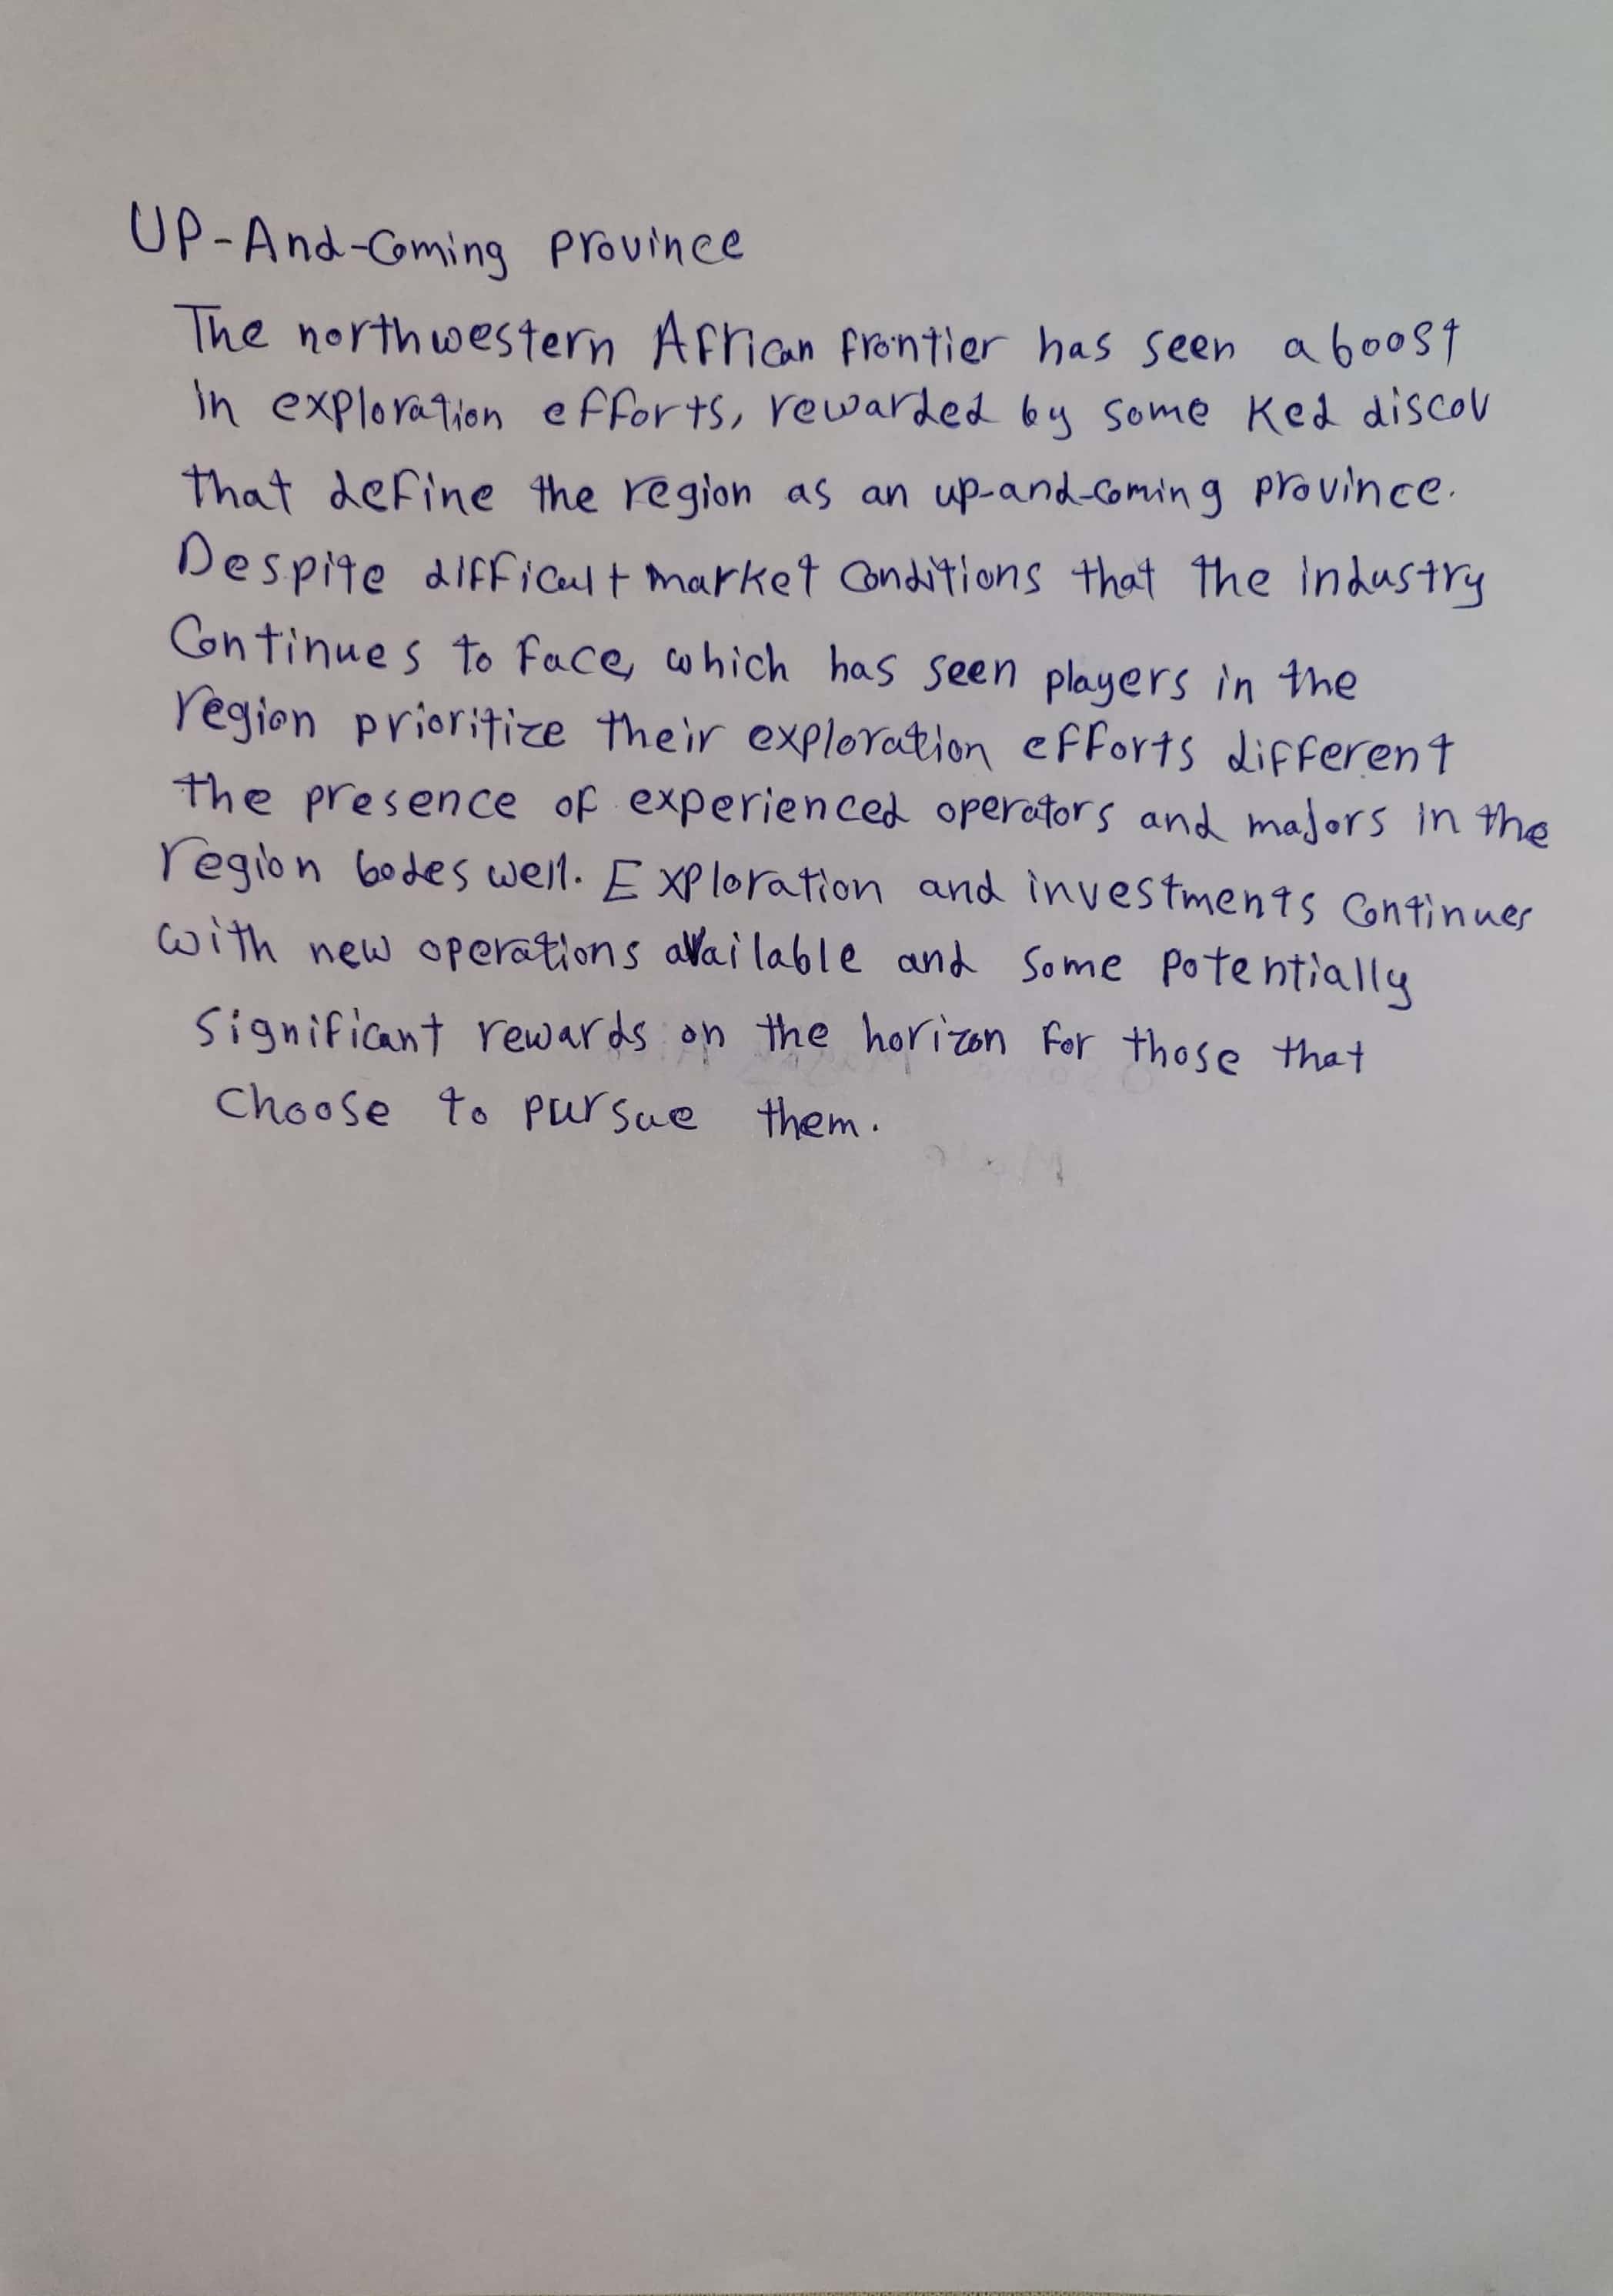 UP-And-Coming province
The northwestern African frontier has seen a boost
in exploration efforts, rewarded by some Ked discov
that define the region as an up-and-coming province.
Despite difficult market conditions that the industry
Continues to face, which has seen players in the
region prioritize their exploration efforts different
the presence of experienced operators and majors in the
region bodes well. Exploration and investments continues
with new operations available and some potentially
significant rewards on the horizon for those that
choose to pursue them.